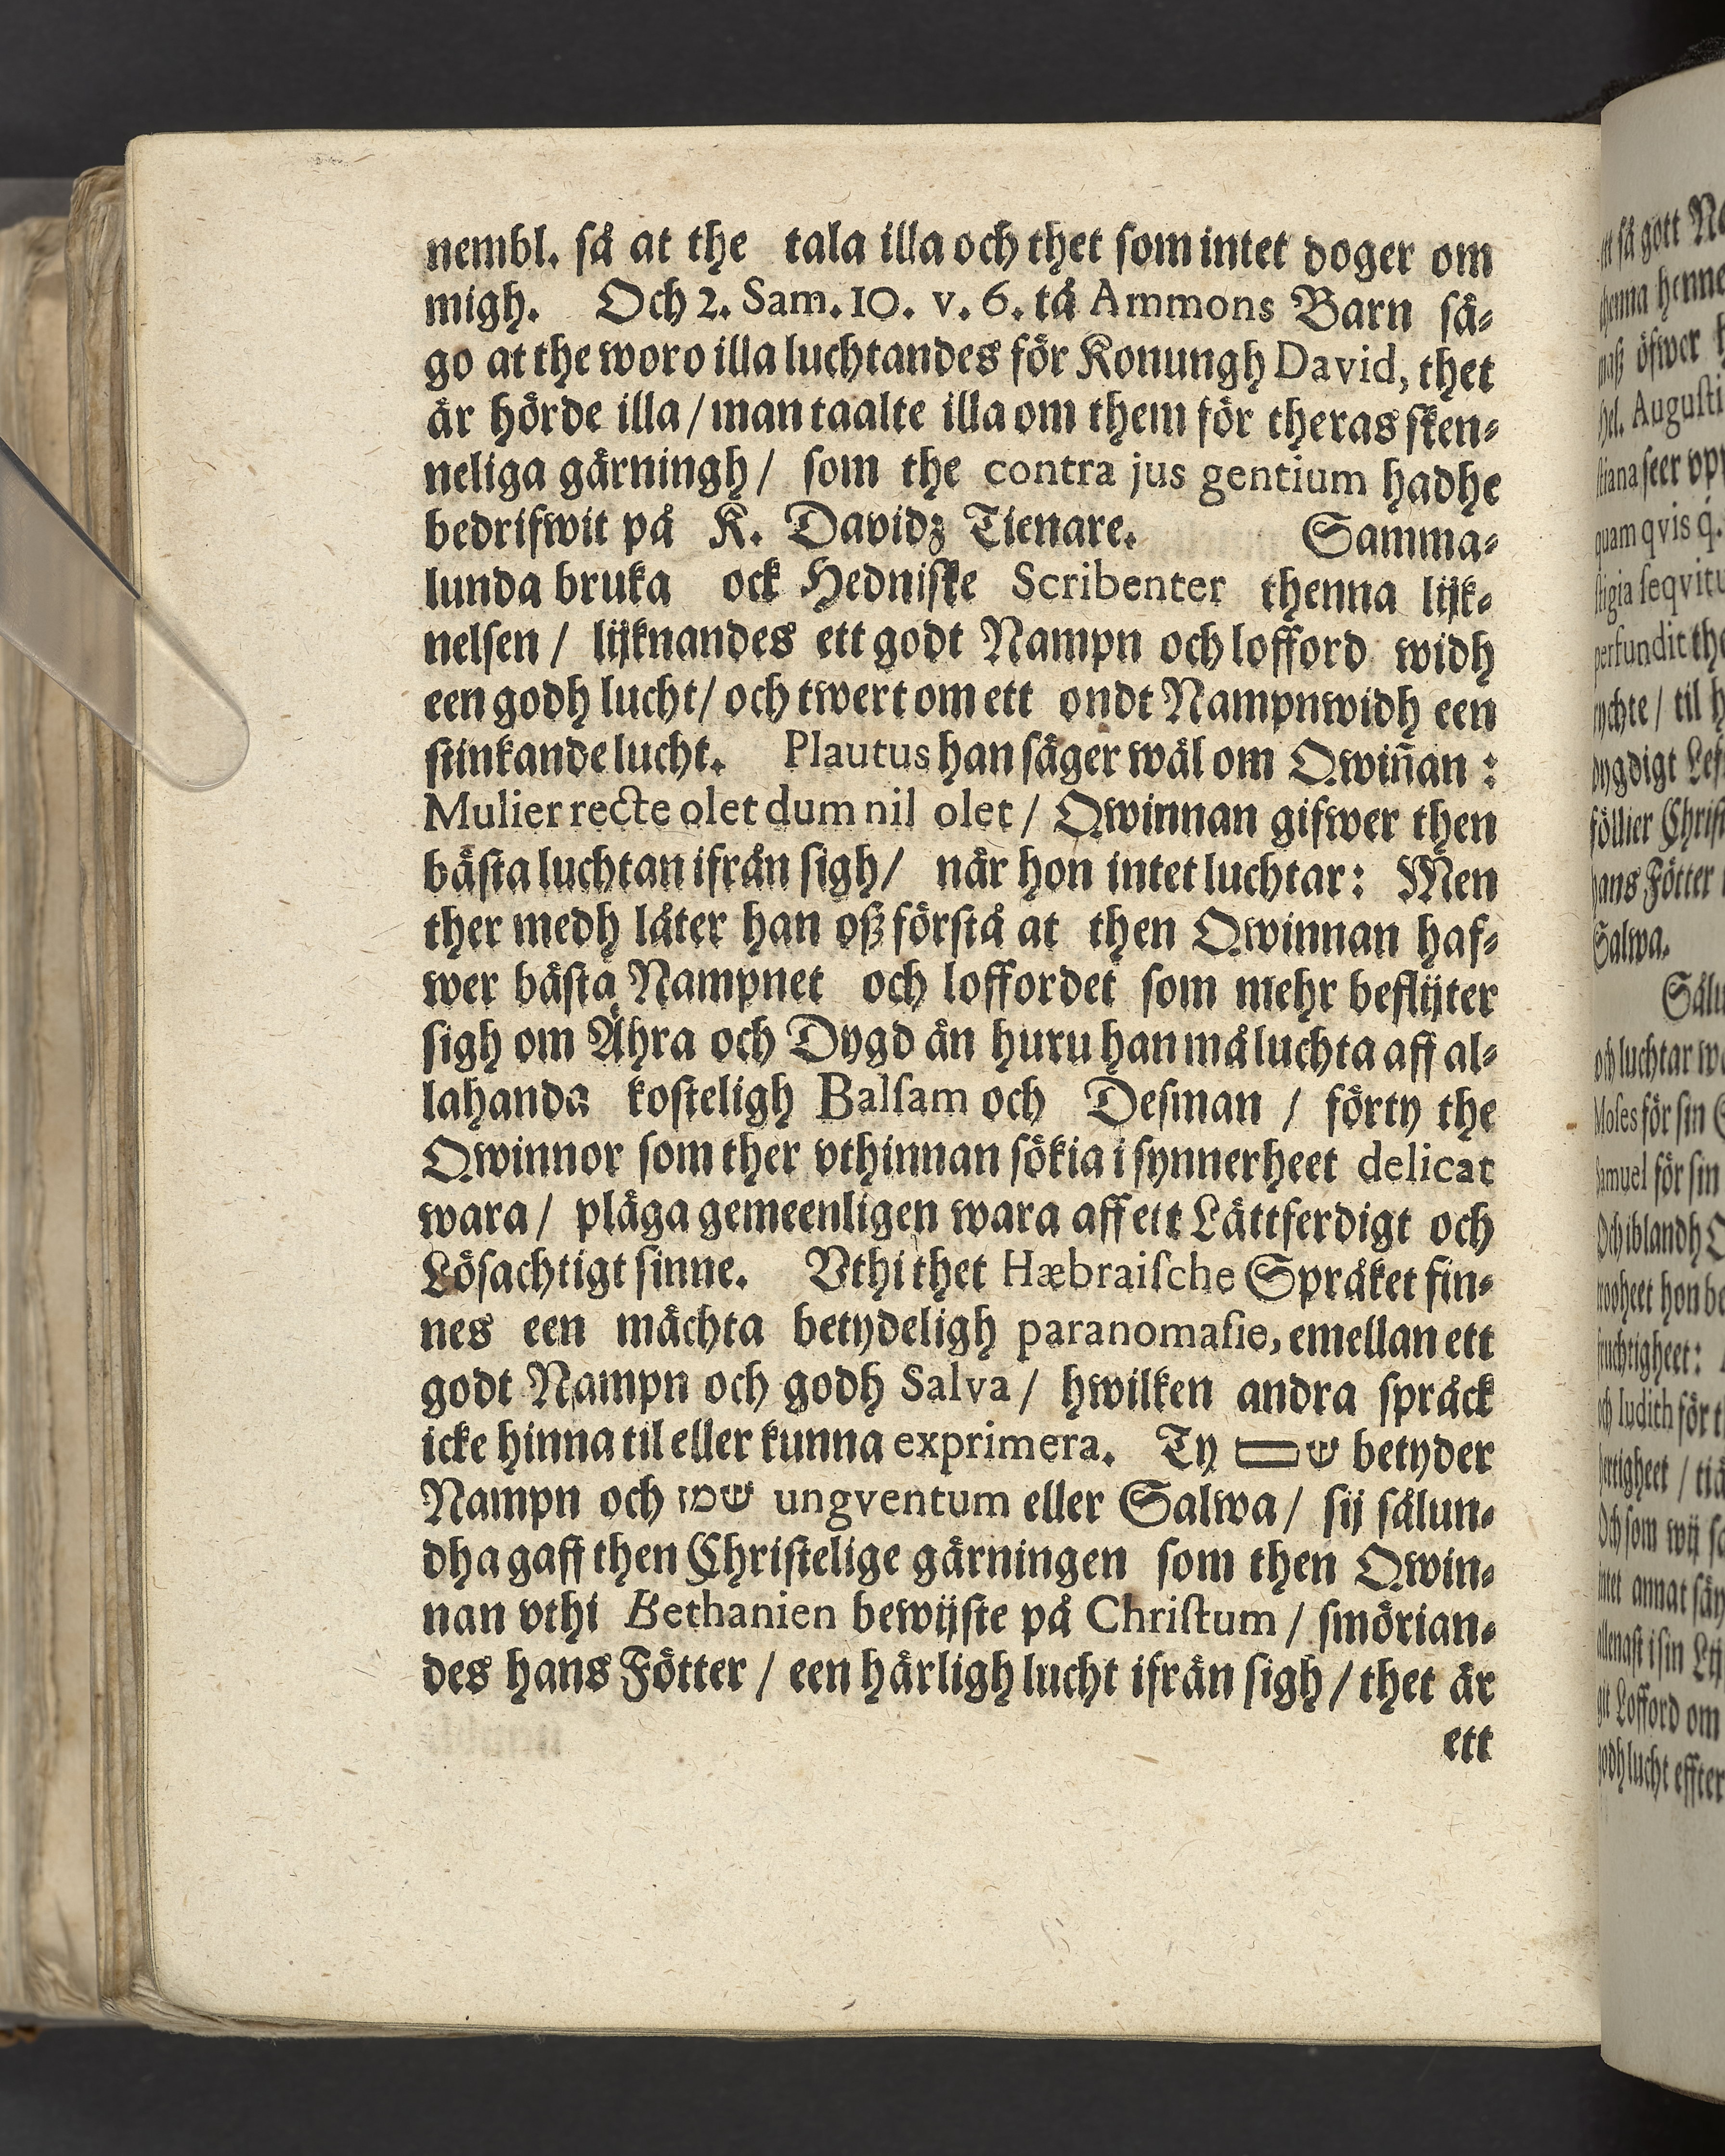 nembl. så at the tala illa och thet som intet doger om
migh. Och 2. Sam. 10. v. 6. tå Ammons Barn så-
go at the woro illa luchtandes för Konungh David, thet
är hörde illa / man taalte illa om them för theras sken-
neliga gärningh / som the contra jus gentium hadhe
bedrifwit på K. Davidz Tienare. Samma-
lunda bruka ock Hedniske Scribenter thenna lijk-
nelsen / lijknandes ett godt Nampn och lofford widh
een godh lucht / och twert om ett ondt Nampn widh een
stinkande lucht. Plautus han säger wäl om Qwiñan :
Mulier recte olet dum nil olet / Qwinnan gifwer then
bästa luchtan ifrån sigh / när hon intet luchtar: Men
ther medh låter han oß förstå at then Qwinnan haf-
wer bästa Nampnet och loffordet som mehr beflijter
sigh om Ähra och Dygd än huru han må luchta aff al-
lahanda kosteligh Balsam och Desman / förty the
Qwinnor som ther vthinnan sökia i synnerheet delicat
wara / pläga gemeenligen wara aff ett Lättferdigt och
Lösachtigt sinne. Vthi thet Hæbraische Språket fin-
nes een mächta betydeligh paranomasie, emellan ett
godt Nampn och godh Salva / hwilken andra språck
icke hinna til eller kunna exprimera. Ty שם betyder
Nampn och שמן ungventum eller Salwa / sij sålun-
dha gaff then Christelige gärningen som then Qwin-
nan vthi Bethanien bewijste på Christum / smörian-
des hans Fötter / een härligh lucht ifrån sigh / thet är
ett
så gott
thenna henne
öfwer
Hel. Augusti
stiana seer
quam qvis q́.
stigia seqvitu
perfundit
rychte / til
dygdigt
föllier
hans Fötter
Salwa.
Sålu
och luchtar
Moses för sin
Samuel för sin
Och iblandh
hon
och Iudith för
Och som wij
intet annat
allenast i sin
Lofford om
godh lucht effter